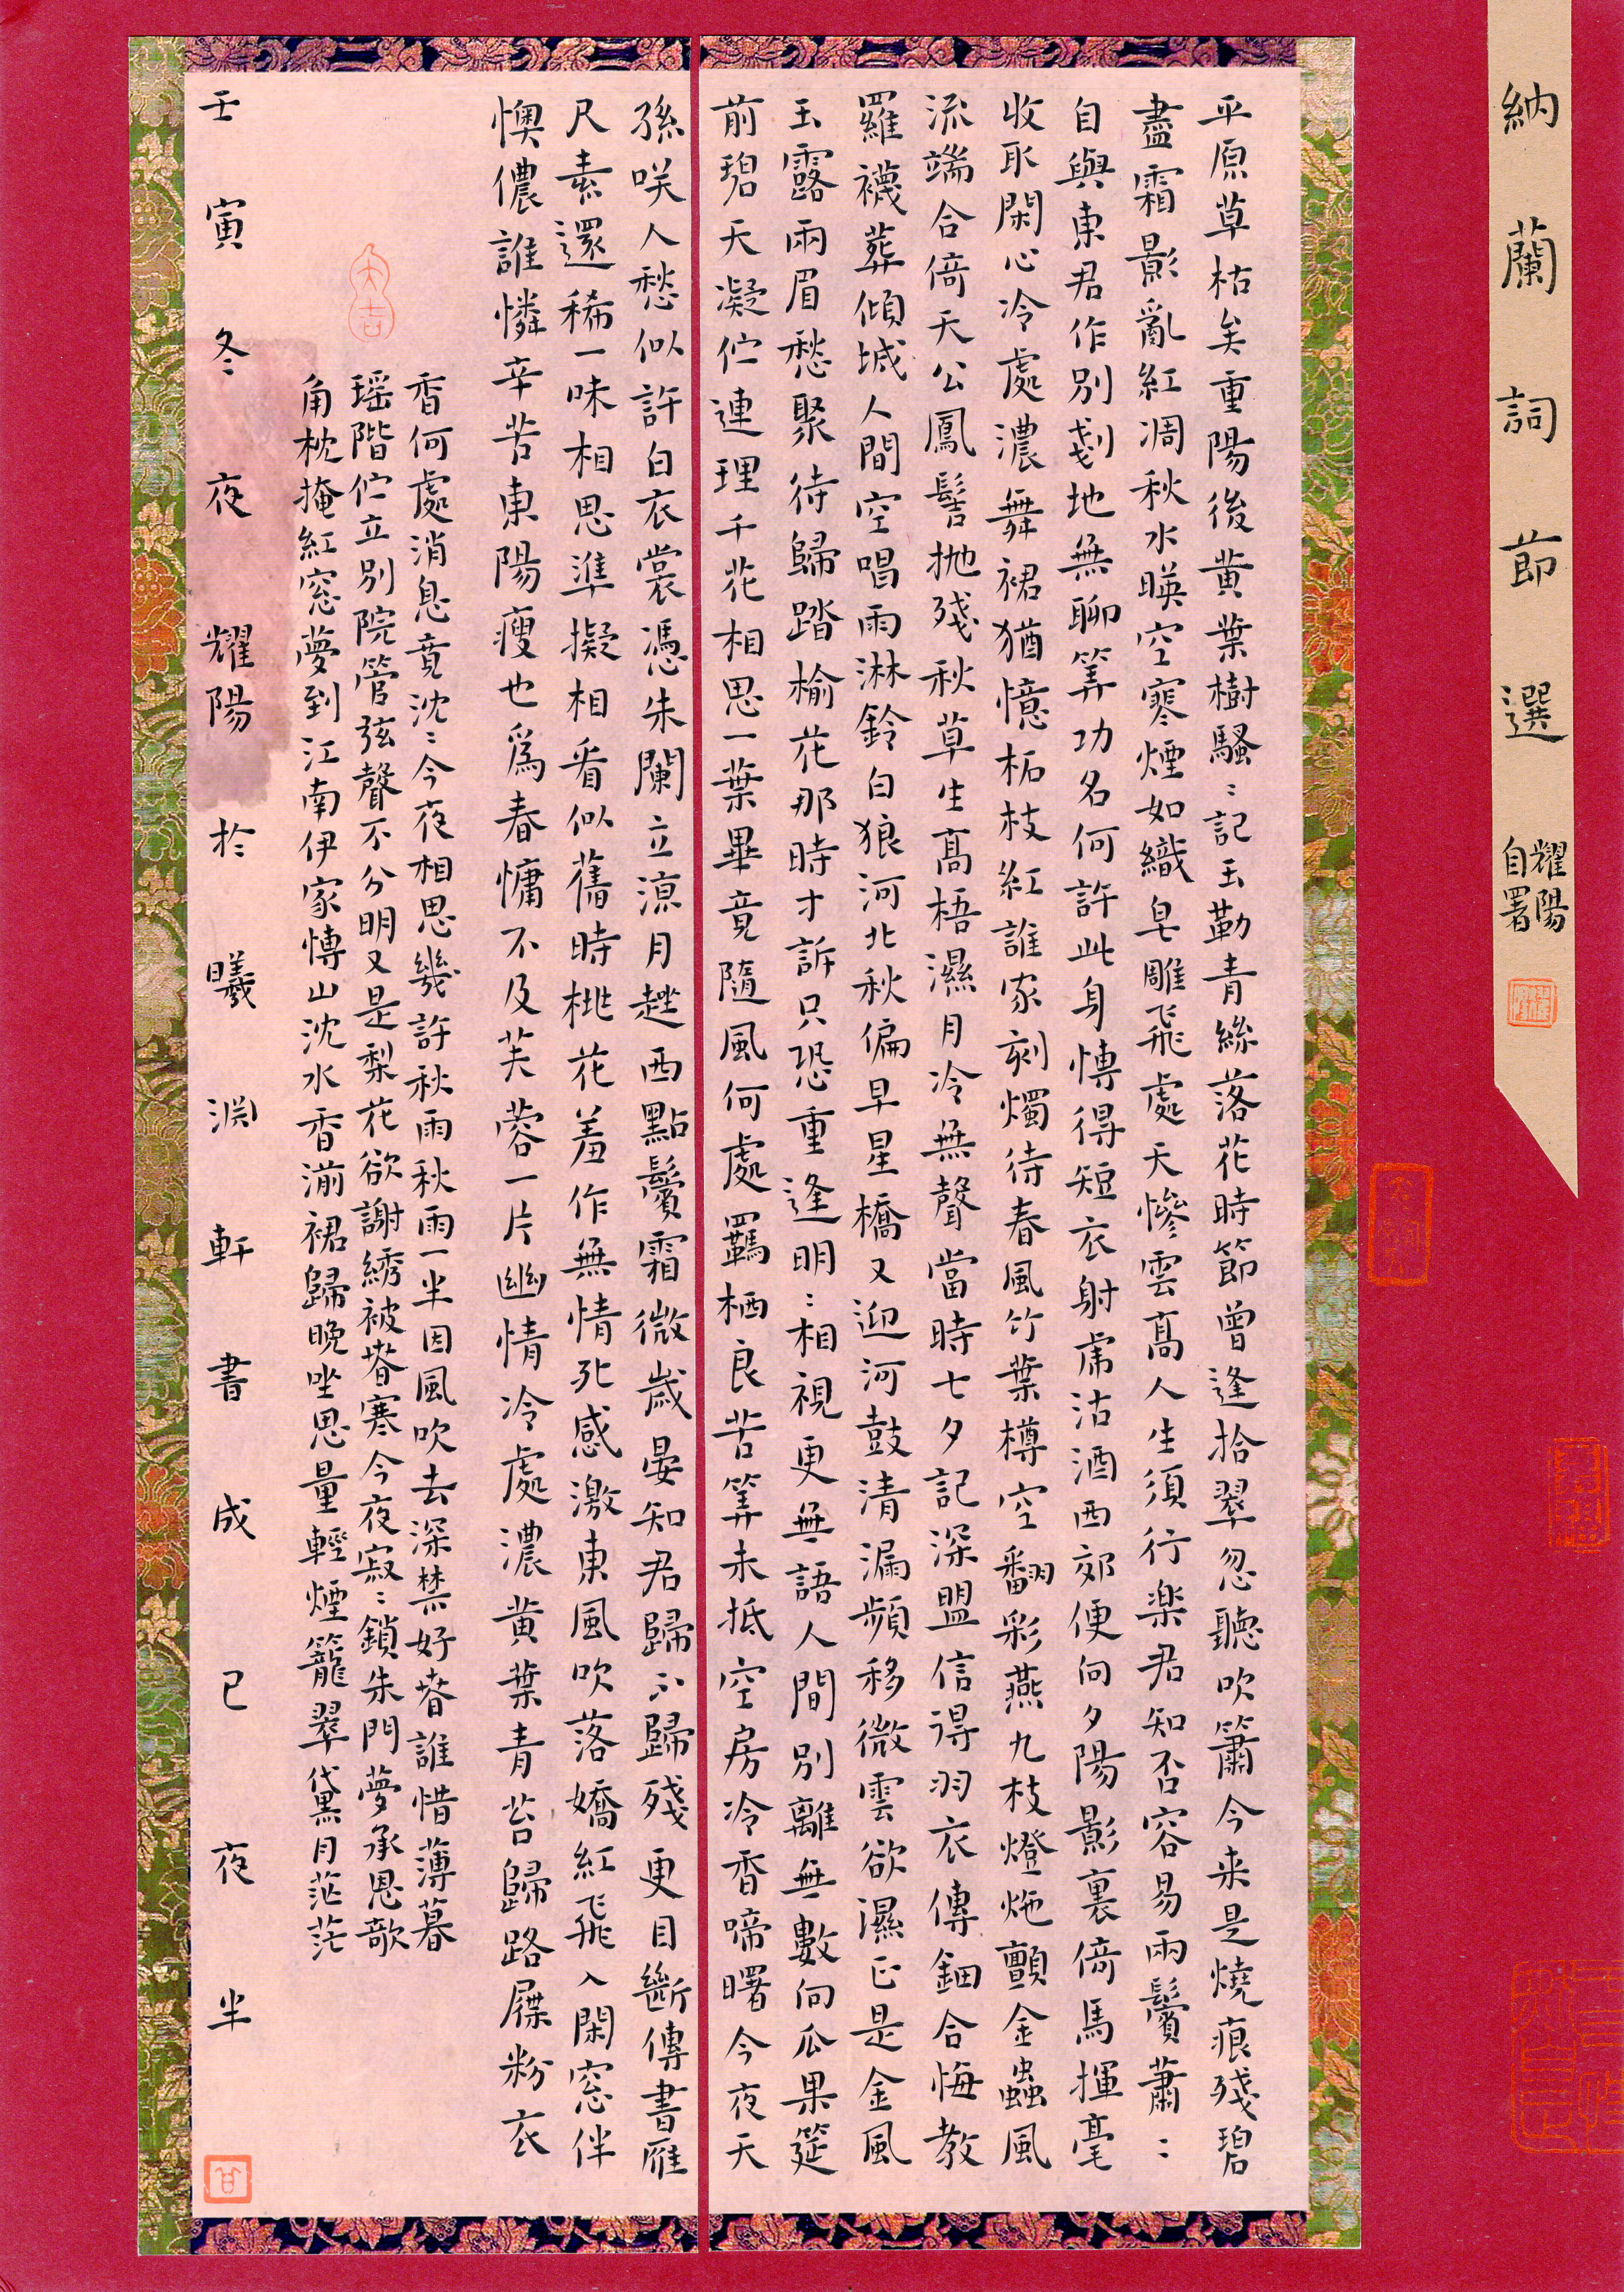 納蘭詞節選
耀陽
自署
平原草枯矣重陽後黃葉樹騷〻記玉勒青絲落花時節曾逢拾翠忽聽吹簫今来是燒痕殘碧
盡霜影亂紅凋秋水暎空寒煙如織皂雕飛處天慘雲髙人生須行楽君知否容易兩鬢蕭〻
自與東君作別剗地無聊筭功名何許此身愽得短衣射虎沽酒西郊便向夕陽影裏倚馬揮毫
收取閑心冷處濃舞裙猶憶柘枝紅誰家刻燭待春風竹葉樽空翻彩燕九枝燈灺顫金蟲風
流端合倚天公鳳髻抛殘秋草生髙梧濕月冷無聲當時七夕記深盟信得羽衣傳鈿合悔教
羅襪葬傾城人間空唱雨淋鈴白狼河北秋偏早星橋又迎河鼓清漏頻移微雲欲濕正是金風
玉露兩眉愁聚待歸踏榆花那時才訴只恐重逢明〻相視更無語人間別離無數向瓜果筵
前碧天凝佇連理千花相思一葉畢竟隨風何處羈栖良苦筭未抵空房冷香啼曙今夜天
孫咲人愁似許白衣裳憑朱闌立涼月趖西點鬢霜微歲晏知君歸不歸殘更目斷傳書雁
尺素還稀一味相思準擬相看似舊時桃花羞作無情死感激東風吹落嬌紅飛入閑窓伴
懊儂誰憐辛苦東陽瘦也爲春慵不及芙蓉一片幽情冷處濃黄葉青苔歸路屧粉衣
香何處消息竟沈〻今夜相思幾許秋雨秋雨一半因風吹去深禁好春誰惜薄暮
瑶階佇立別院管弦聲不分明又是梨花欲謝綉被春寒今夜寂〻鎖朱門夢承恩歌
角枕掩紅窓夢到江南伊家愽山沈水香湔裙歸晚坐思量輕煙籠翠黛月茫茫
壬寅冬夜耀陽於曦淵軒書成已夜半
大吉